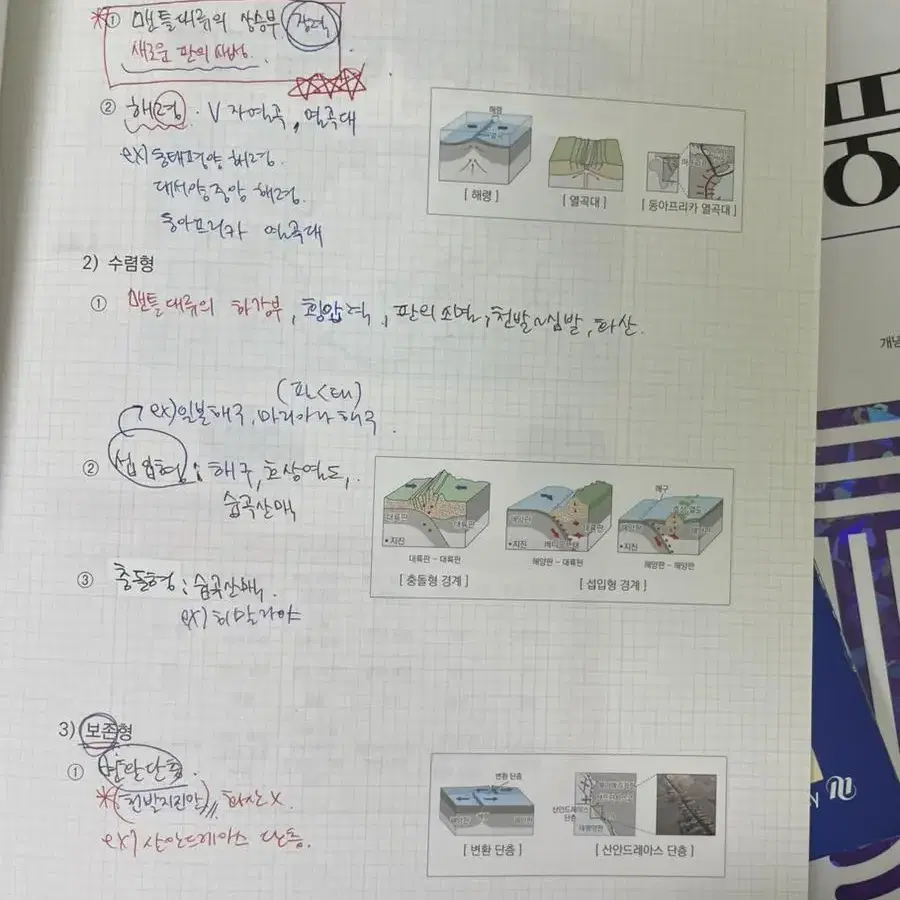 *① 맨틀대류의 상승부, 장력
새로운 판의 생성.
② 해령 · V자열곡, 열곡대
ex) 동태평양 해령.
대서양중앙 해령.
동아프리카 열곡대
해령
[ 해령 ]
[ 열곡대 ]
[ 동아프리카 열곡대 ]
2) 수렴형
① 맨틀대류의 하강부, 횡압력, 판의 소멸, 천발~심발, 화산.
ex) 일본해구, 마리아나 해구.
② 섭입형 : 해구, 호상열도,
습곡산맥
대륙판
대륙판
•지진
대륙판 - 대륙판
[ 충돌형 경계 ]
해양판
대륙판
•지진
해양판 - 대륙판
해구
해양판
•지진
해양판 - 해양판
[ 섭입형 경계 ]
③ 충돌형 : 습곡산맥.
ex) 히말라야
3) 보존형
① 변환단층.
*(천발지진만) 화산X.
ex) 산안드레아스 단층.
변환 단층
[ 변환 단층 ]
산안드레아스
단층
태평양판
[ 산안드레아스 단층 ]
개념